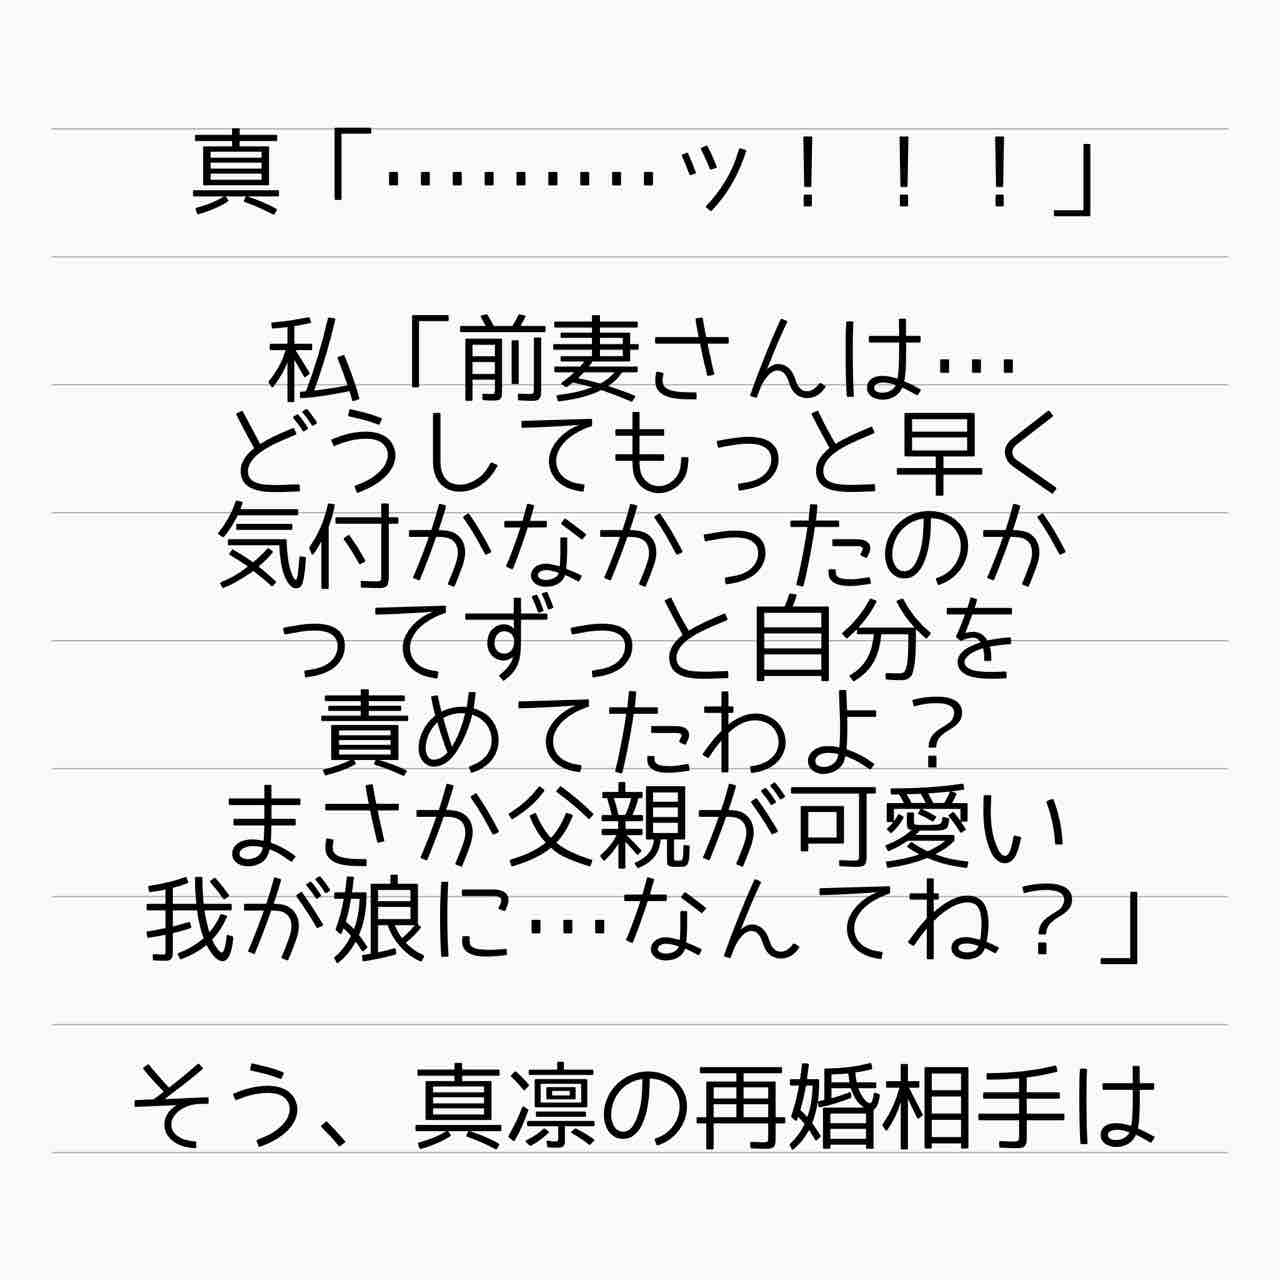 真「………ッ！！！」
私「前妻さんは…
どうしてもっと早く
気付かなかったのか
ってずっと自分を
責めてたわよ？
まさか父親が可愛い
我が娘に…なんてね？」
そう、真凛の再婚相手は